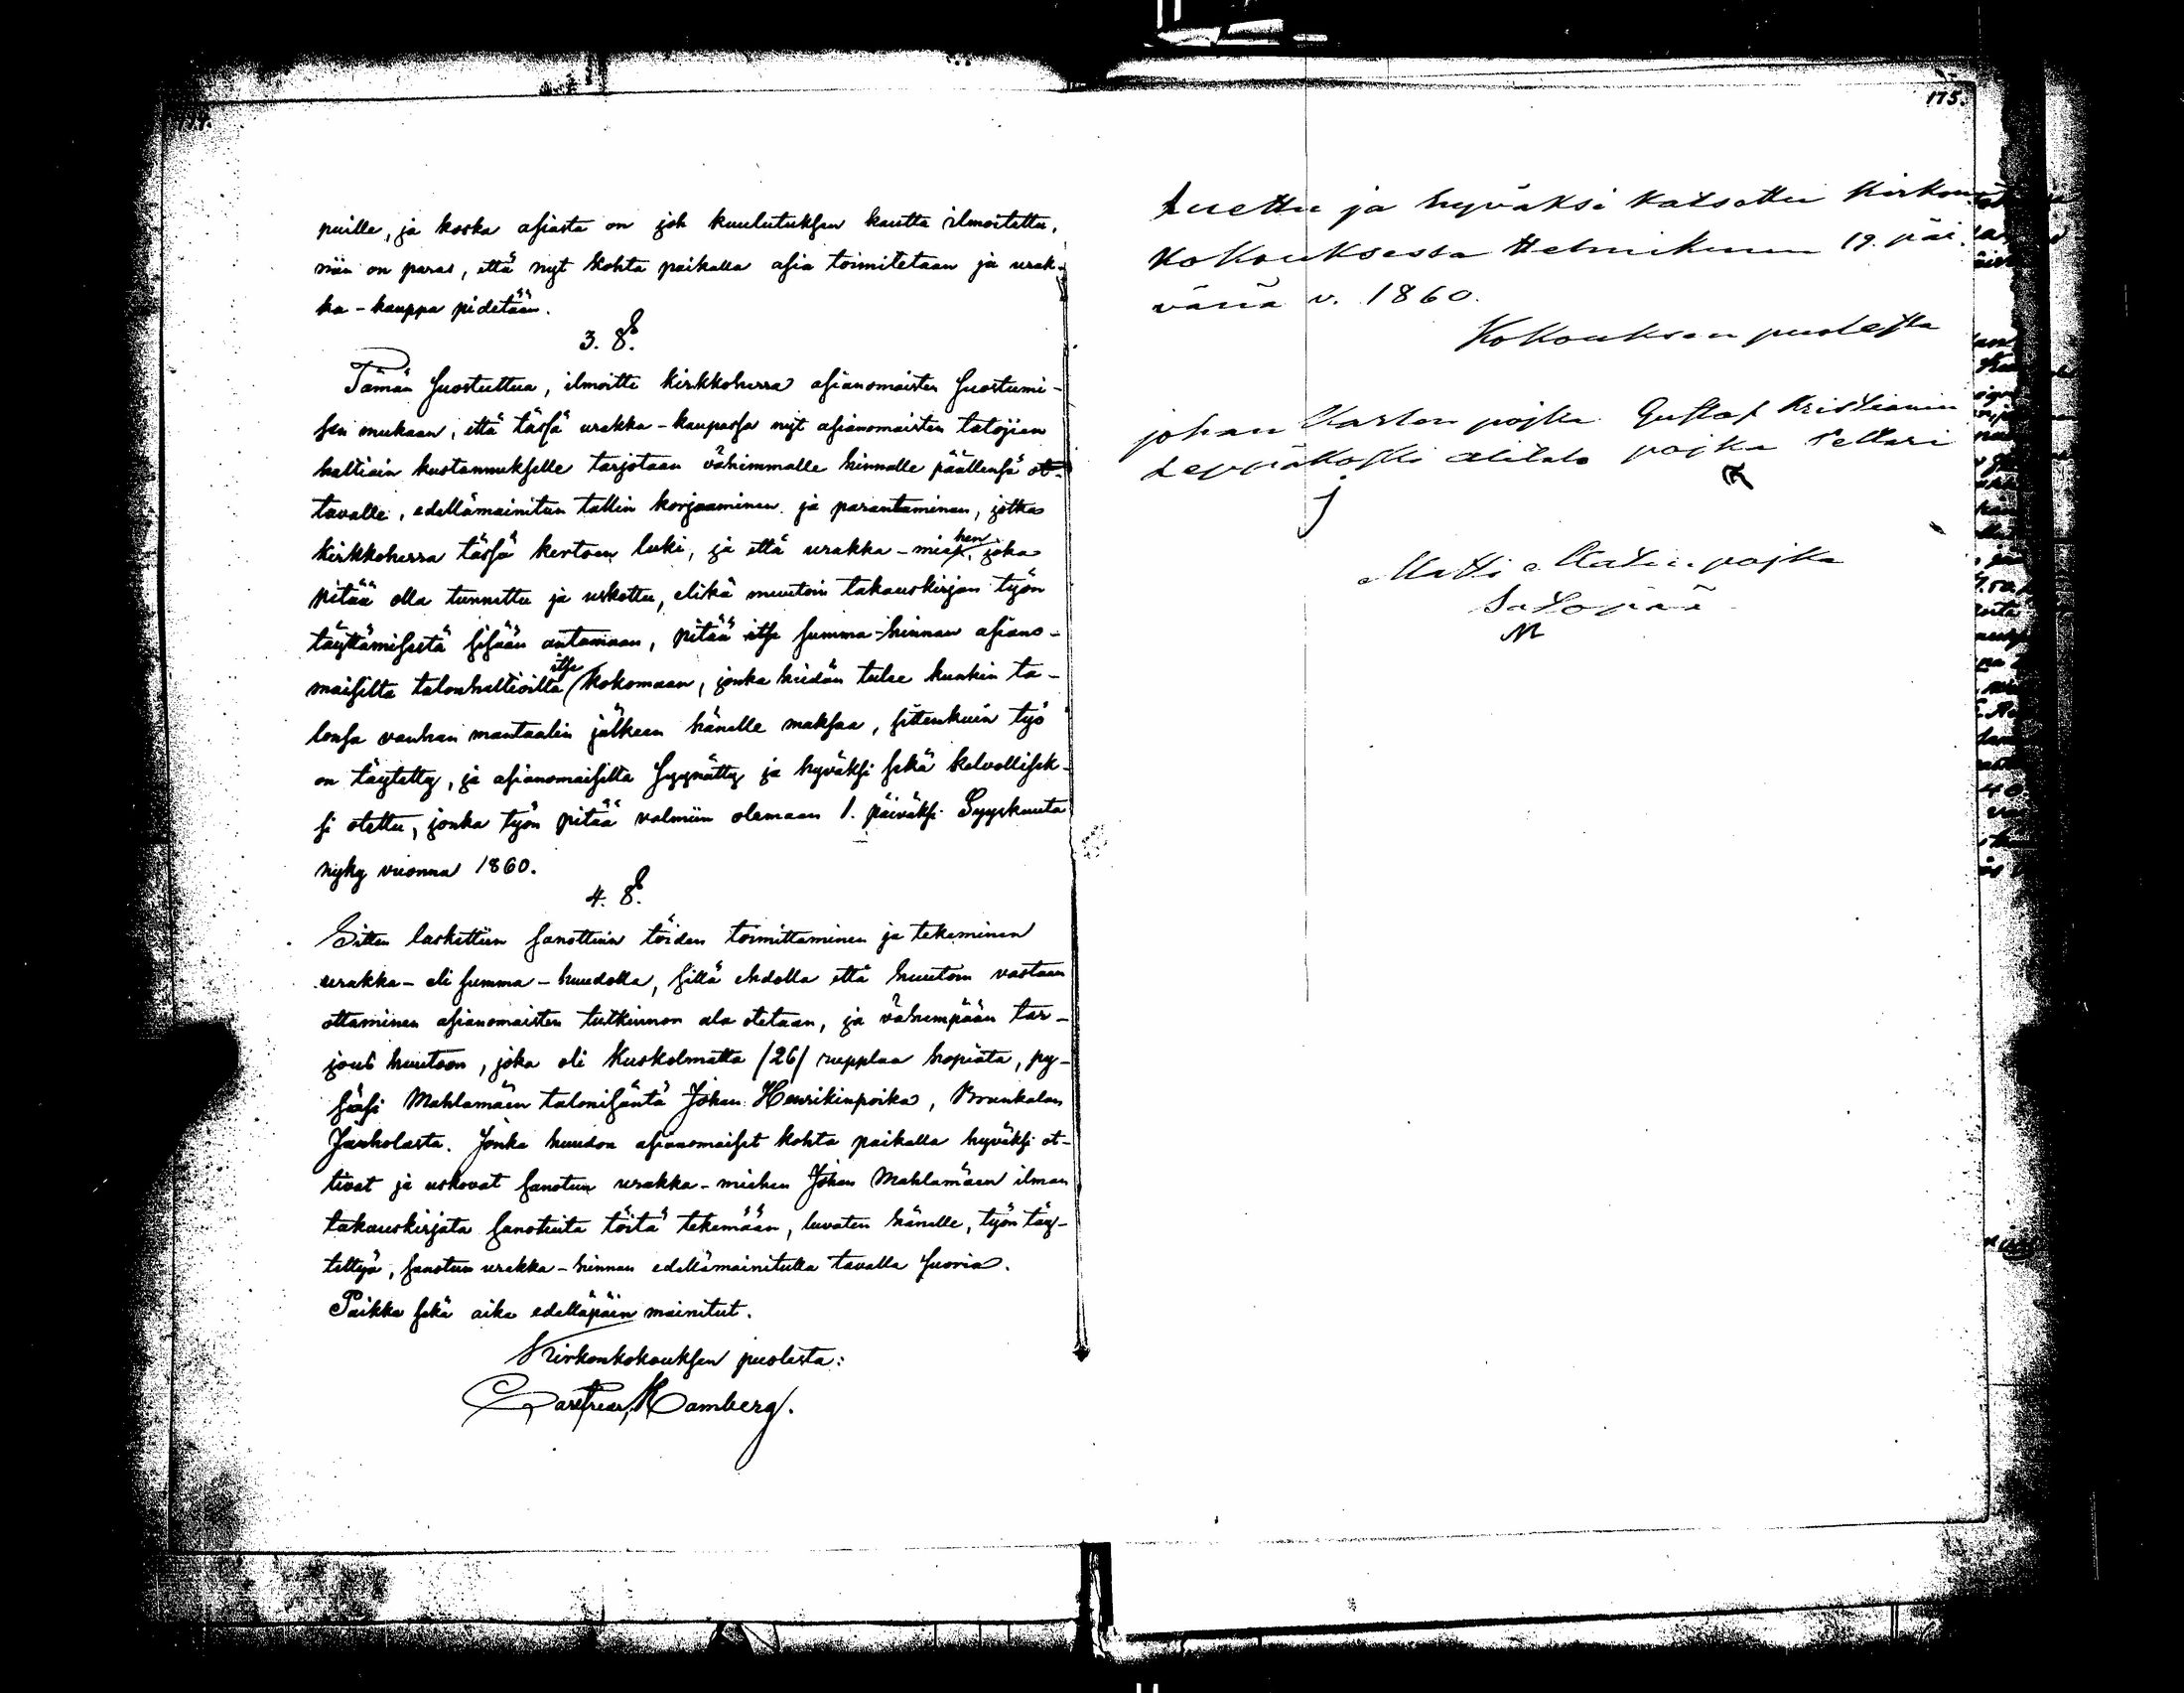 174.
puille, ja koska asiasta on joh kuulutuksen kautta ilmoitettu,
niin on paras, että nyt kohta paikalla asia toimitetaan ja urak-
ka-kauppa pidetään.
3. §.
Tämän suostuttua, ilmoitti kirkkoherra asianomaisten suostumi-
sen mukaan, että tässä urakka-kaupassa nyt asianomaisten talojien
haltiain kustannukselle tarjotaan vähimmälle hinnalle päällensä ot-
tavalle, edellämainitun tallin korjaaminen ja parantaminen, jotka
kirkkoherra tässä kertoen luki, ja että urakka-miehen, joka
pitää olla tunnettu ja uskottu, elikä muutoin takauskirjan työn
täyttämisestä sisään antamaan, pitää itse summa-hinnan asiano-
maisilta talonhaltioilta itse kokomaan, jonka heidän tulee kunkin ta-
lonsa vanhan mantaalin jälkeen hänelle maksaa, sittenkuin työ
on täytetty, ja asianomaisilta syynätty ja hyväksi sekä kelvollisek-
si otettu, jonka työn pitää valmiin olemaan 1. päiväksi Syyskuuta
nyky vuonna 1860.
4. §.
Sitten laskettiin sanottuin töiden toimittaminen ja tekeminen
urakka- eli summa-huudolla, sillä ehdolla että huuton vastaan
ottaminen asianomaisten tutkinnon ala otetaan, ja vähempään tar-
jouS huutoon, joka oli kuskolmatta /26/ rupplaa hopiata, py-
säsi Mahlamäen talonisäntä Johan Henrikinpoika,
Janholasta. Jonka huudon asianomaiset kohta paikalla hyväksi ot-
tivat ja uskovat sanotun urakka-miehen Johan Mahlamäen ilman
takauskirjata sanotuita töitä tekemään, luvaten hänelle, työn täy-
tettyä, sanotun urakka-hinnan edellämainitulla tavalla suoria.
Paikka sekä aika edelläpäin mainitut.
Kirkonkokouksen puolesta:
Hamberg.
175.
Luettu ja hyväksi katsottu Kirkon
Kokouksessa Helmikuun 19. päi
vänä v. 1860.
Kokouksen puolesta
johan Karlen pojka Gustaf Kristianin
Leppäkoski Alitalo pojka Pettari
j
Matti Matin pojka
Salopää
M